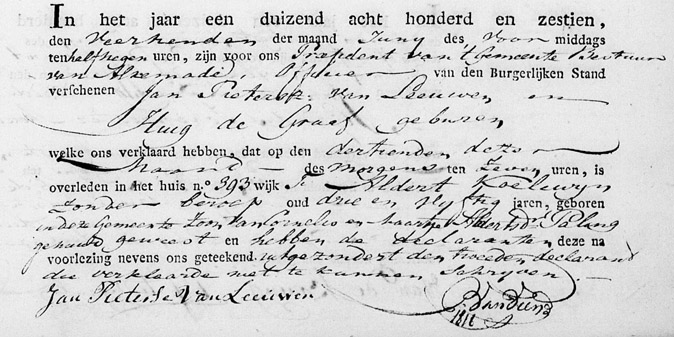 In het jaar een duizend acht honderd en zestien,
den Veertienden der maand Juny des Voor middags
ten half negen uren, zijn voor ons President van 't Gemeente Bestuur
van Alkemade, Officier van den Burgerlijken Stand
verschenen Jan Pieterse van Leeuwen en
Huig de Graaf geburen
welke ons verklaard hebben, dat op den dertienden dezer
Maand des morgens ten Zeven uren, is
overleden in het huis n.º 393 wijk Aldert Koelewyn
zonder beroep oud drie en jaren, geboren
in deze Gemeente Zoon van Cornelis en Maartje
gehuwd geweest en hebben de declaranten deze na
voorlezing nevens ons geteekend. uitgezonderd den tweeden declarand
die verklaarde niet te kunnen Schryven
Jan Pieterse Van Leeuwen
1816